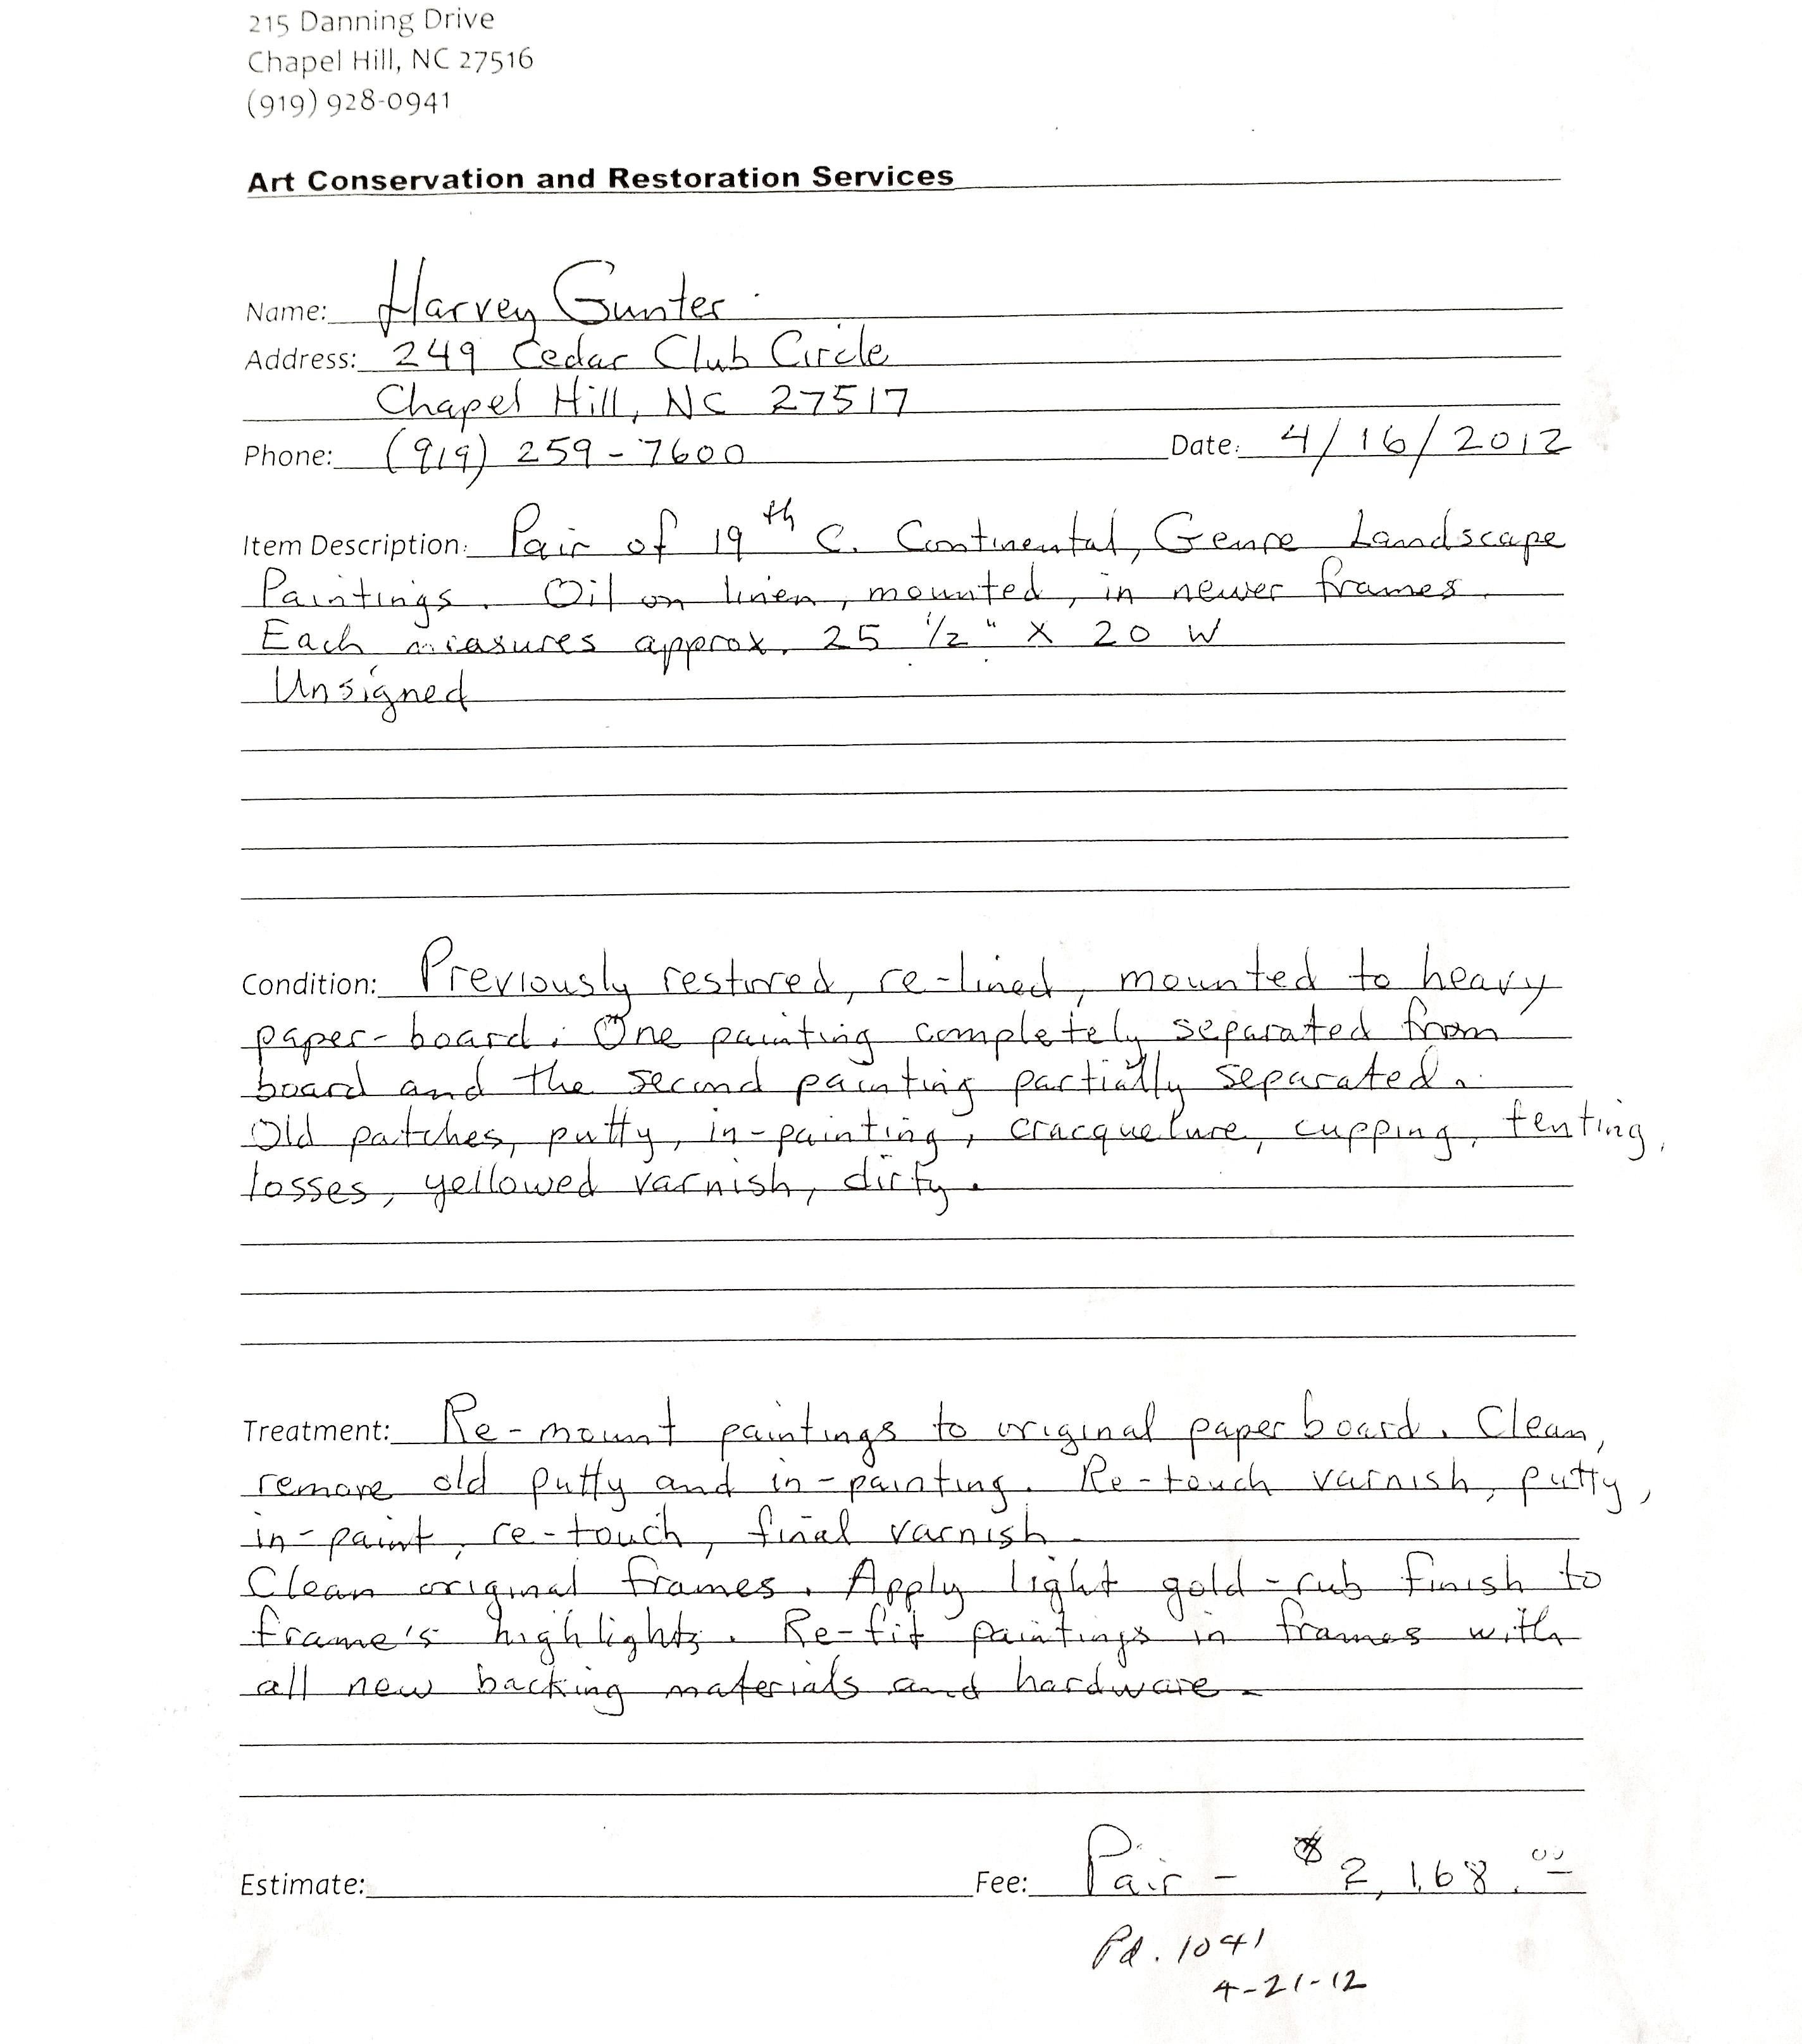 215 Danning Drive
Chapel Hill, NC 27516
(919) 928-0941
Art Conservation and Restoration Services
Name: Harvey Gunter
Address: 249 Cedar Club Circle
Chapel Hill, NC 27517
Phone: (919) 259-7600 Date: 4/16/2012
Item Description: Pair of 19th C. Continental, Genre Landscape
Paintings. Oil on linen, mounted, in newer frames.
Each measures approx. 25 1/2" X 20 W
Unsigned
Condition: Previously restored, re-lined, mounted to heavy
paper-board. One painting completely separated from
board and the second painting partially separated.
Old patches, putty, in-painting, cracquelure, cupping, tenting,
losses, yellowed varnish, dirty.
Treatment: Re-mount paintings to original paper board. Clean,
remove old putty and in-painting. Re-touch varnish, putty,
in-paint, re-touch, final varnish.
Clean original frames. Apply light gold-rub finish to
frame's highlights. Re-fit paintings in frames with
all new backing materials and hardware.
Estimate: Fee: Pair - $2,168.00
Pd. 1041
4-21-12